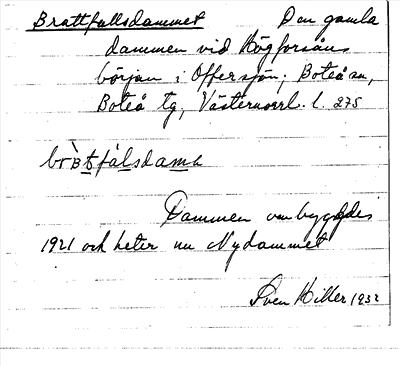 Brattfallsdammet Den gamla
dammen vid Högforsåns
början i Offersjön; Boteå sn,
Boteå tg, Västernorrl. l. 275
Dammen ombyggdes
1921 och heter nu Nydammet
Sven Hiller 1932